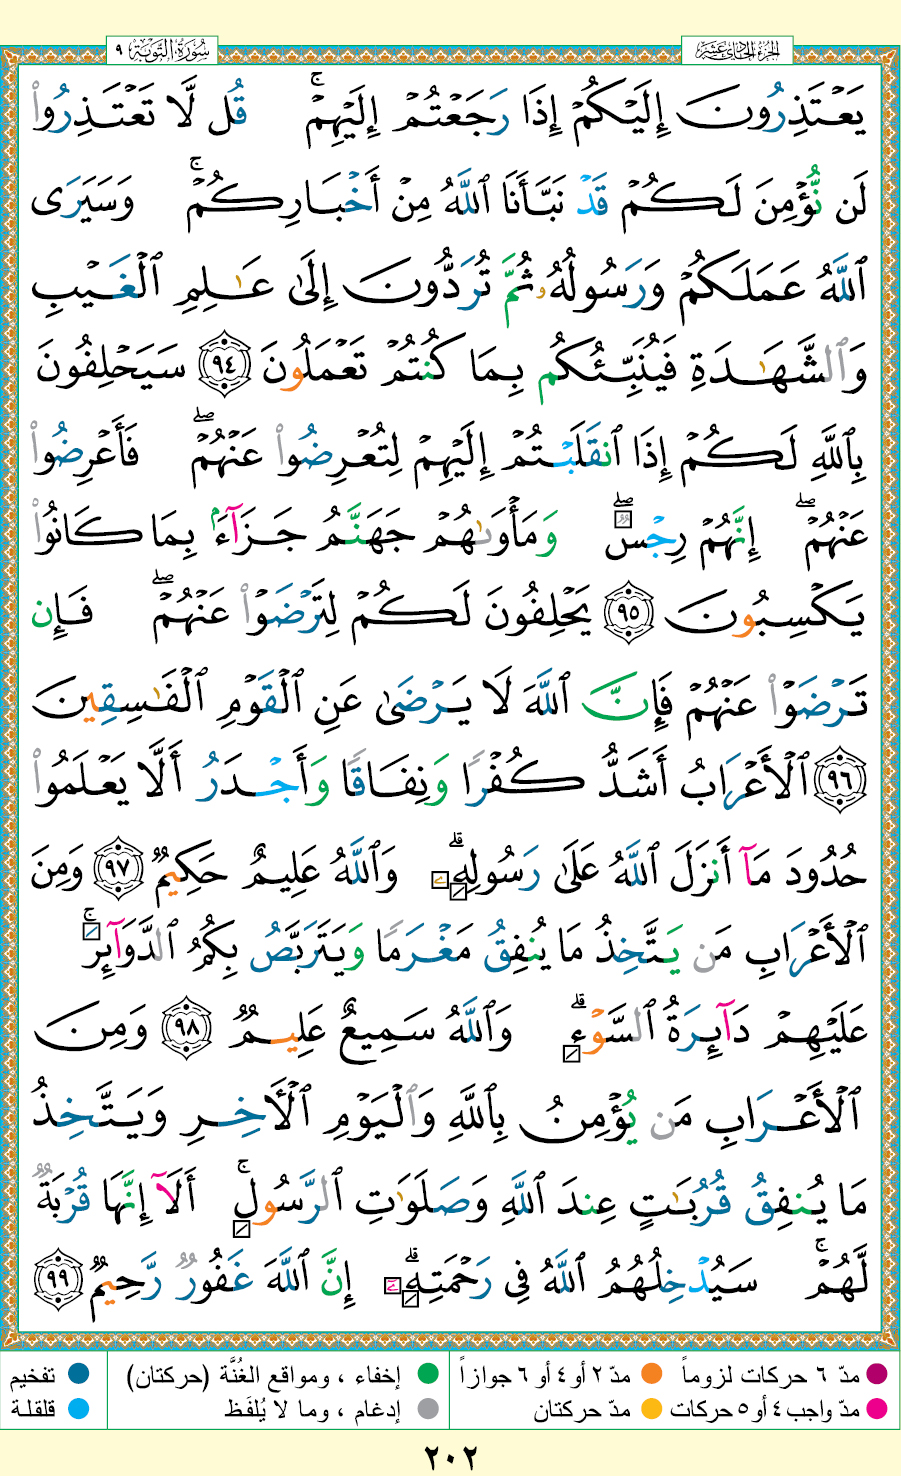 سُورَةُ التَّوْبَةِ ٩
الجزء الحادي عشر
يَعْتَذِرُونَ إِلَيْكُمْ إِذَا رَجَعْتُمْ إِلَيْهِمْ ۚ قُل لَّا تَعْتَذِرُوا۟
لَن نُّؤْمِنَ لَكُمْ قَدْ نَبَّأَنَا ٱللَّهُ مِنْ أَخْبَارِكُمْ ۚ وَسَيَرَى
ٱللَّهُ عَمَلَكُمْ وَرَسُولُهُۥ ثُمَّ تُرَدُّونَ إِلَىٰ عَـٰلِمِ ٱلْغَيْبِ
وَٱلشَّهَـٰدَةِ فَيُنَبِّئُكُم بِمَا كُنتُمْ تَعْمَلُونَ ٩٤ سَيَحْلِفُونَ
بِٱللَّهِ لَكُمْ إِذَا ٱنقَلَبْتُمْ إِلَيْهِمْ لِتُعْرِضُوا۟ عَنْهُمْ ۖ فَأَعْرِضُوا۟
عَنْهُمْ ۖ إِنَّهُمْ رِجْسٌ ۖ وَمَأْوَىٰهُمْ جَهَنَّمُ جَزَآءًۢ بِمَا كَانُوا۟
يَكْسِبُونَ ٩٥ يَحْلِفُونَ لَكُمْ لِتَرْضَوْا۟ عَنْهُمْ ۖ فَإِن
تَرْضَوْا۟ عَنْهُمْ فَإِنَّ ٱللَّهَ لَا يَرْضَىٰ عَنِ ٱلْقَوْمِ ٱلْفَـٰسِقِينَ
٩٦ ٱلْأَعْرَابُ أَشَدُّ كُفْرًا وَنِفَاقًا وَأَجْدَرُ أَلَّا يَعْلَمُوا۟
حُدُودَ مَآ أَنزَلَ ٱللَّهُ عَلَىٰ رَسُولِهِۦ ۗ وَٱللَّهُ عَلِيمٌ حَكِيمٌ ٩٧ وَمِنَ
ٱلْأَعْرَابِ مَن يَتَّخِذُ مَا يُنفِقُ مَغْرَمًا وَيَتَرَبَّصُ بِكُمُ ٱلدَّوَآئِرَ ۚ
عَلَيْهِمْ دَآئِرَةُ ٱلسَّوْءِ ۗ وَٱللَّهُ سَمِيعٌ عَلِيمٌ ٩٨ وَمِنَ
ٱلْأَعْرَابِ مَن يُؤْمِنُ بِٱللَّهِ وَٱلْيَوْمِ ٱلْـَٔاخِرِ وَيَتَّخِذُ
مَا يُنفِقُ قُرُبَـٰتٍ عِندَ ٱللَّهِ وَصَلَوَٰتِ ٱلرَّسُولِ ۚ أَلَآ إِنَّهَا قُرْبَةٌ
لَّهُمْ ۚ سَيُدْخِلُهُمُ ٱللَّهُ فِى رَحْمَتِهِۦٓ ۗ إِنَّ ٱللَّهَ غَفُورٌ رَّحِيمٌ ٩٩
مدّ ٦ حركات لزوماً مدّ ٢ أو ٤ أو ٦ جوازاً إخفاء ، ومواقع الغُنَّة (حركتان) تفخيم
مدّ واجب ٤ أو ٥ حركات مدّ حركتان إدغام ، وما لا يُلفَظ قلقلة
٢٠٢